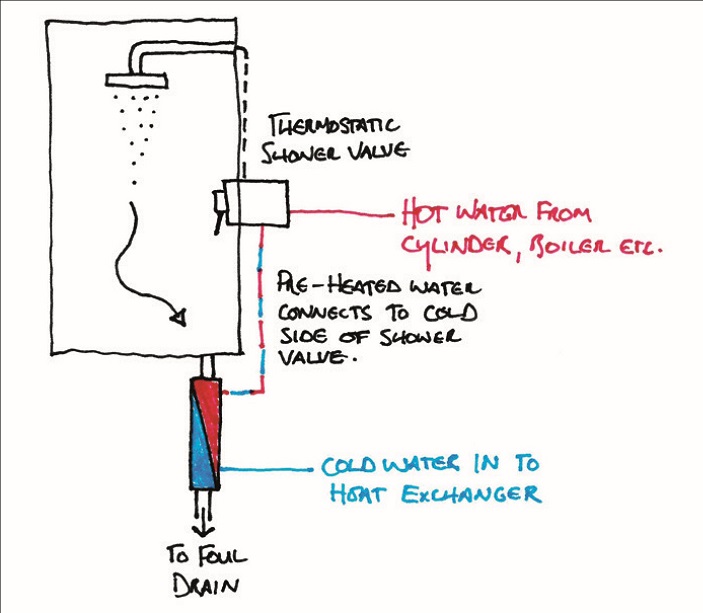 THERMOSTATIC
SHOWER VALVE
HOT WATER FROM
CYLINDER, BOILER ETC.
PRE-HEATED WATER
CONNECTS TO COLD
SIDE OF SHOWER
VALVE.
COLD WATER IN TO
HEAT EXCHANGER
TO FOUL
DRAIN